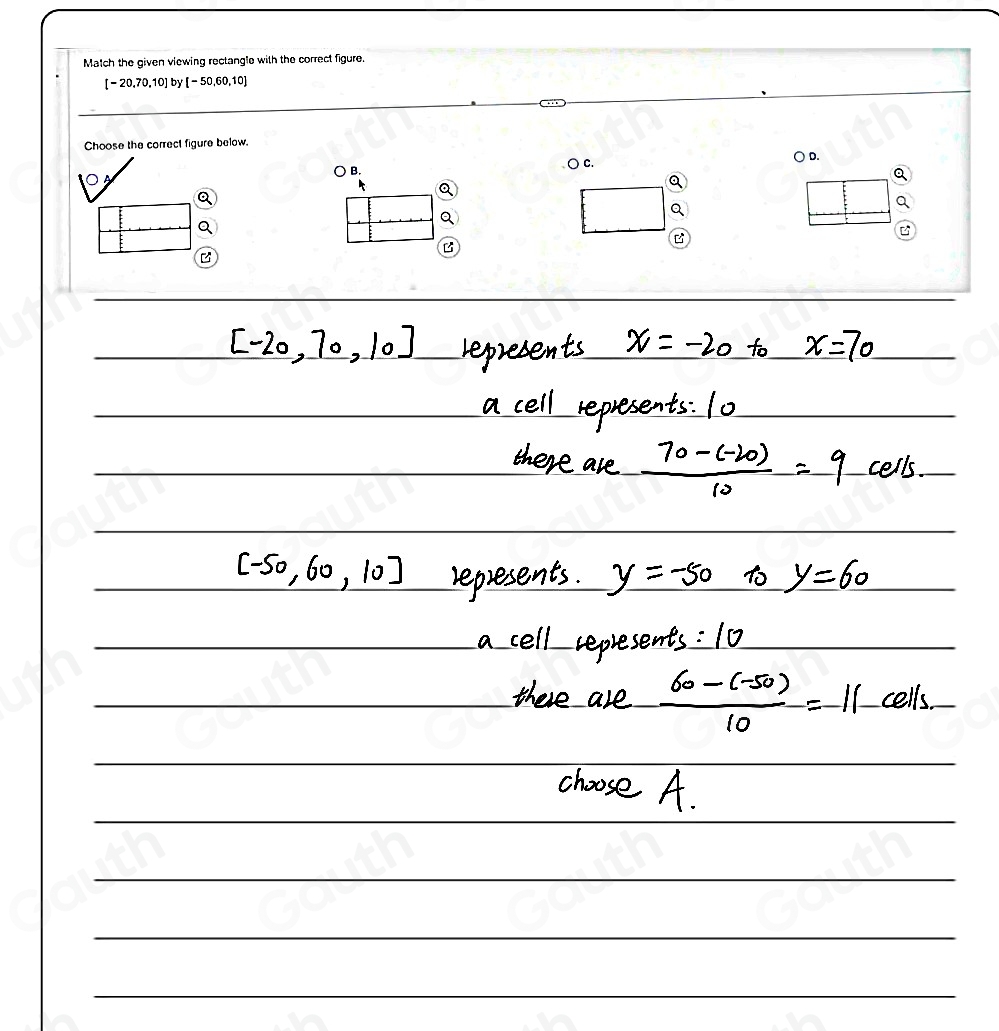 Match the given viewing rectangle with the correct figure.
[-20,70,10] by [-50,60,10]
Choose the correct figure below.
A.
B.
C.
D.
[-20, 70, 10] represents x = -20 to x=70
a cell represents: 10
there are 70-(-20)/10 = 9 cells.
[-50, 60, 10] represents. y = -50 to y=60
a cell represents: 10
there are 60-(-50)/10 = 11 cells.
choose A.
Gauth